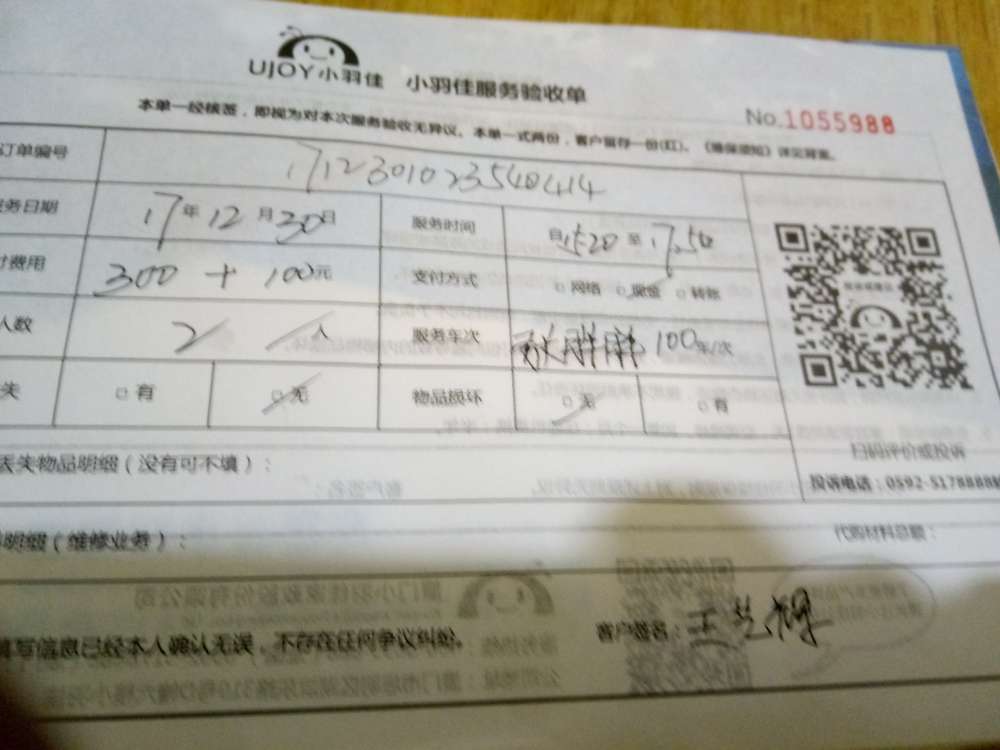 UJOY小羽佳 小羽佳服务验收单
本单一经核签，即视为对本次服务验收无异议。本单一式两份，客户留存一份(红)。《维保须知》详见背面。
No.1055988
订单编号 1712301023540414
务日期 17年12月30日 服务时间 自15:20至17:50
费用 300+100元 支付方式 □网络 □现金 □转账
人数 2人 服务车次 100车/次
失 □有 □无 物品损坏 □无 □有
扫码评价或投诉
丢失物品明细（没有可不填）： 投诉电话：0592-5178888
明细（维修业务）： 代购材料总额：
填写信息已经本人确认无误，不存在任何争议纠纷。 客户签名：